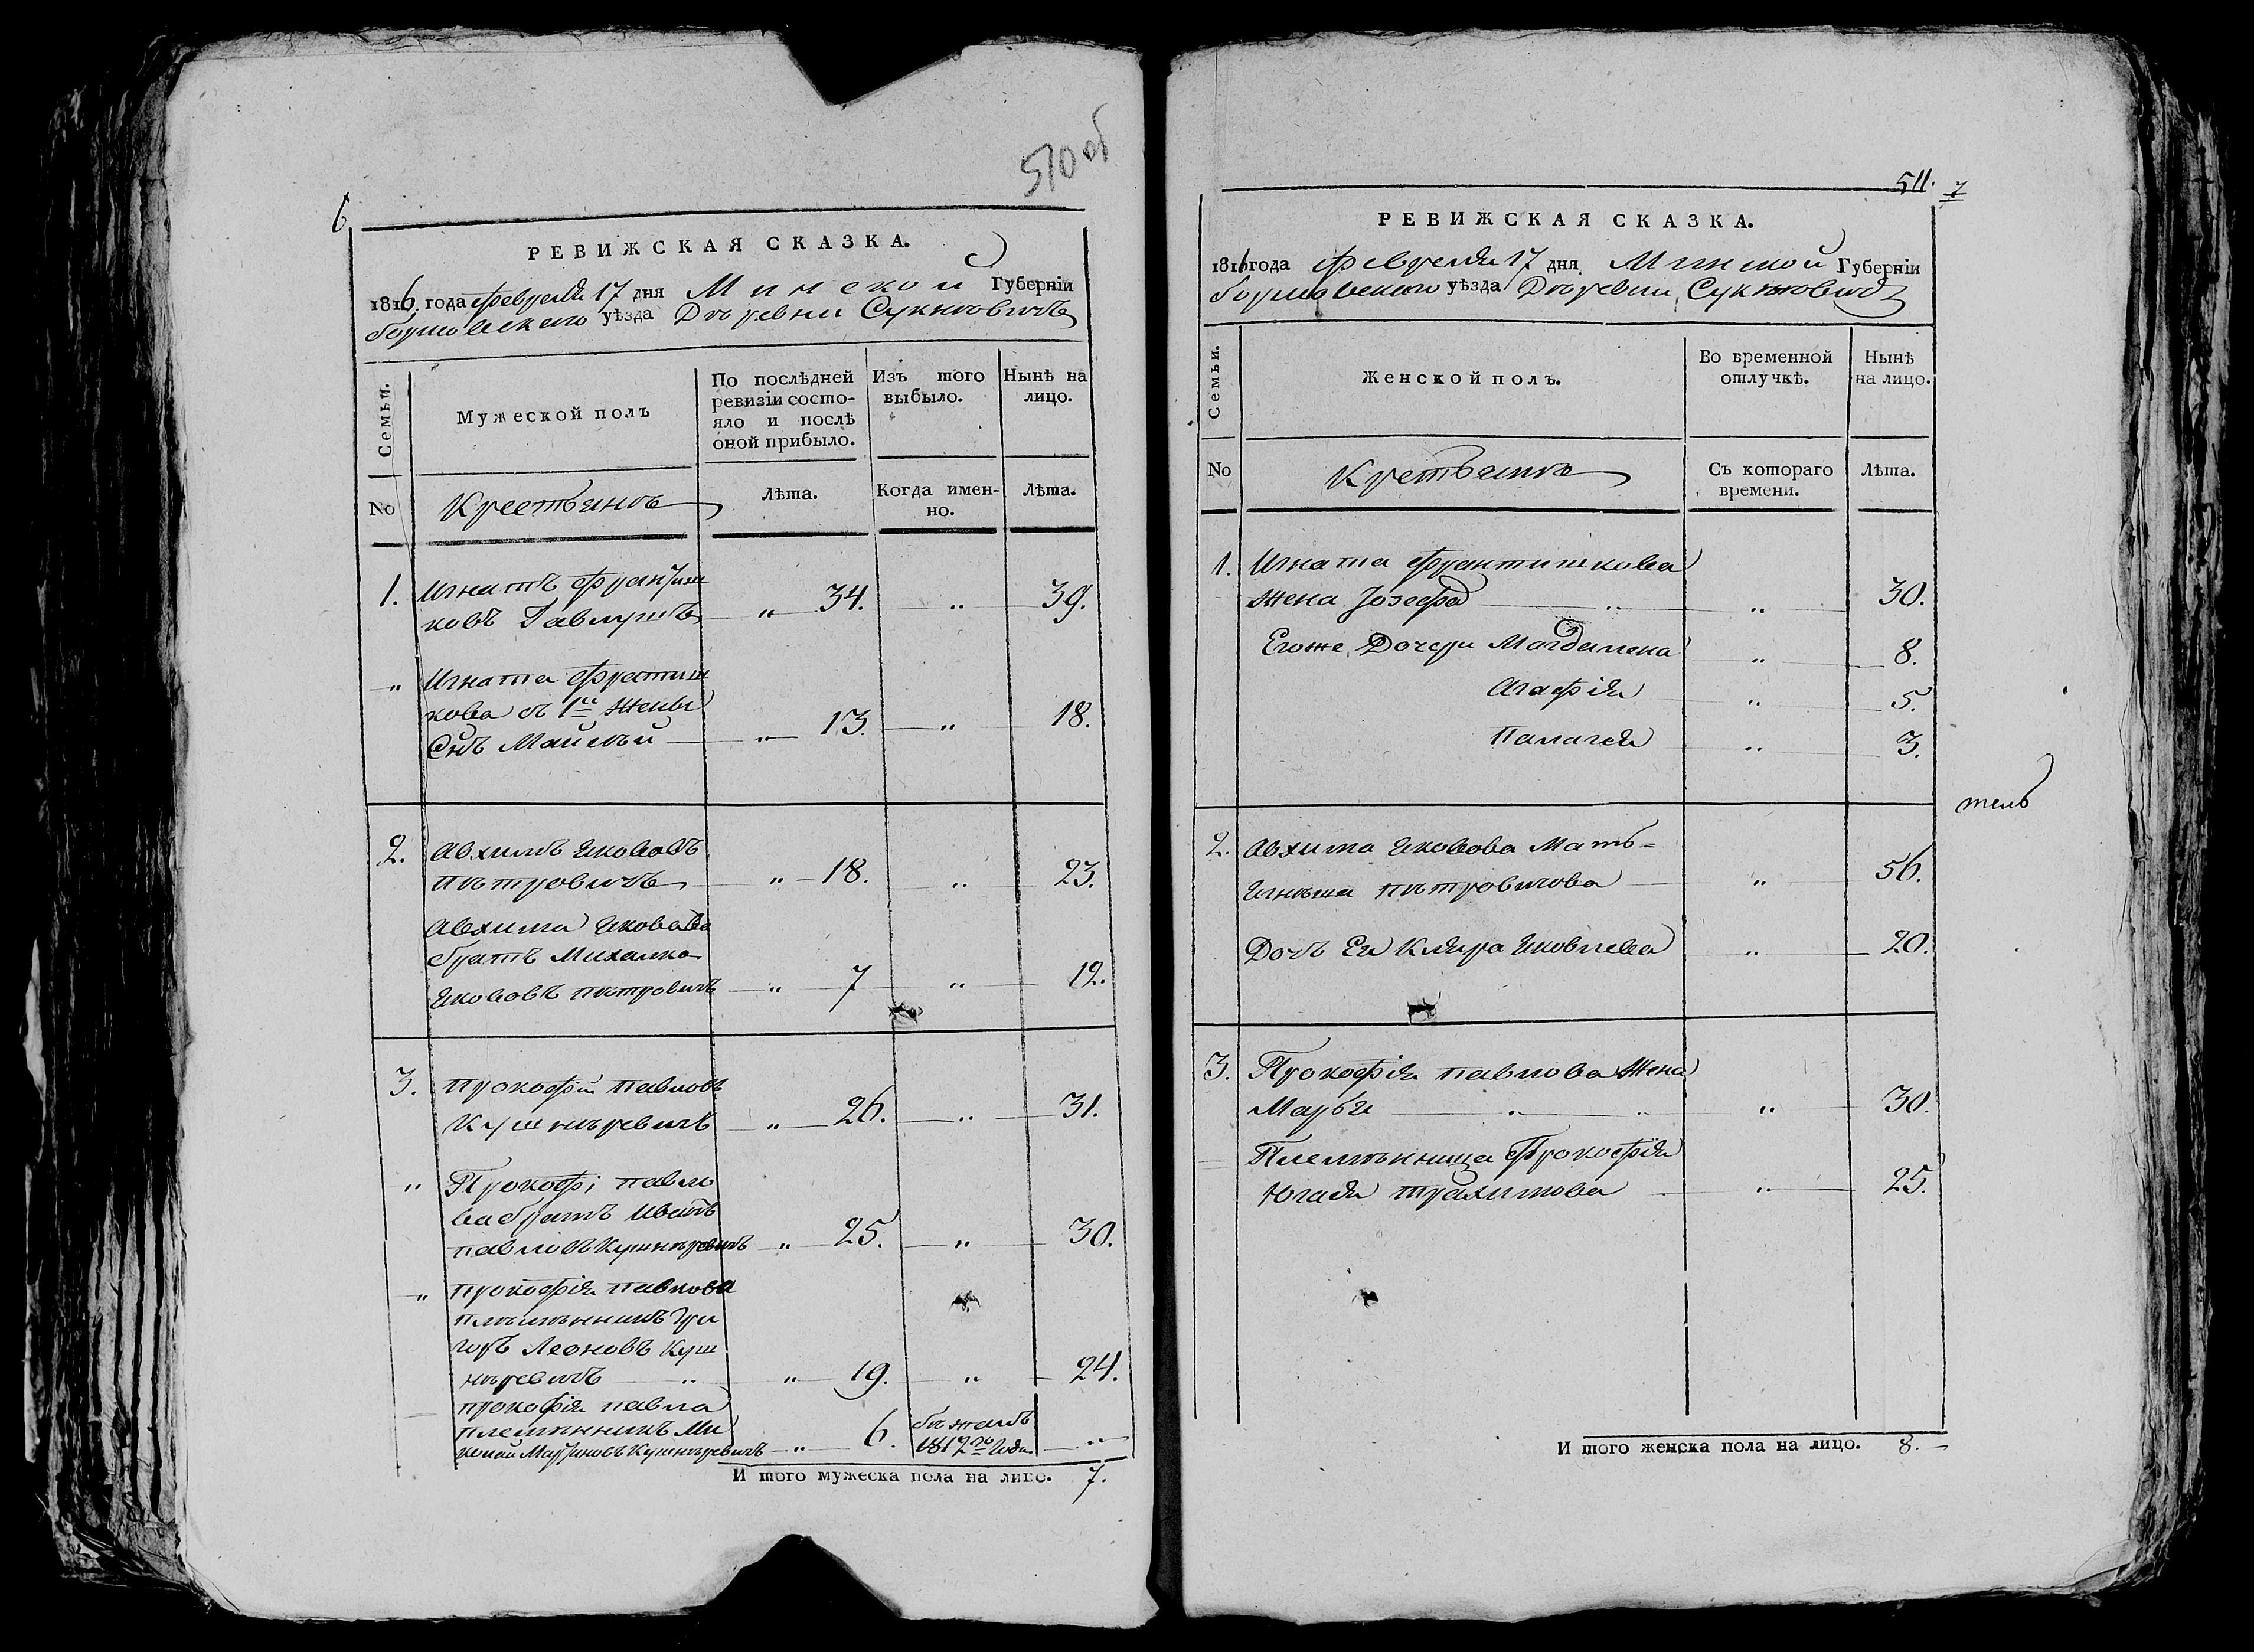 510 об
6
РЕВИЖСКАЯ СКАЗКА.
1816 года февраля 17 дня Минской Губерніи
борисовскаго уѣзда Дѣревни Сукнѣвичъ
Семьи.
Мужеской полъ
По послѣдней ревизіи состо-
яло и послѣ
оной прибыло.
Изъ того
выбыло.
Нынѣ на
лицо.
No
Крестьянъ
Лѣта.
Когда имен-
но.
Лѣта.
1. Игнатъ Франтиш
ковъ Гавлушъ „ 34. „ 39.
„ Игната Фратиш
кова съ 1 й жены
Снъ Матвѣй „ 13. „ 18.
2. Авхимъ Якововъ
Пѣтровичъ „ 18. „ 23.
Авхима Яковова
братъ Михалко
Якововъ пѣтровичъ „ 7 „ 12.
3. Прокофій Павловъ
Кушнѣревичъ „ 26. „ 31.
„ Прокофі павло
ва братъ Иванъ
павловъ Кушнѣревичъ „ 25. „ 30.
„ прокофія павлова
плѣмѣнникъ Гри
горъ Леоновъ Куш
нѣревичъ „ 19. „ 24.
прокофія павла
племѣнникъ Ми
колай Мартиновъ Кушнѣревичъ „ 6. бѣжалъ
1812 го Года „
И того мужеска пола на лицо. 7.
511. 7
РЕВИЖСКАЯ СКАЗКА.
1816 года февраля 17 дня Минской Губерніи
борисовскаго уѣзда Дѣревни Сукнѣвичъ
Семьи.
Женской полъ.
Во временной
отлучкѣ.
Нынѣ
на лицо.
No
Съ котораго
времени.
Лѣта.
1. Игната Франтишкова
жена Jозефа „ 30.
Егоже Дочери Магдалена „ 8.
Агафія „ 5.
Палагея „ 3.
тель
2. Авхима Яковова Мать
пѣтровичова „ 56.
Дочь Ея Клара Яковлева „ 20.
3. Прокофія павлова Жена
Марья „ 30.
Племѣнница Прокофія
Югася трахимова „ 25.
И того женска пола на лицо. 8.